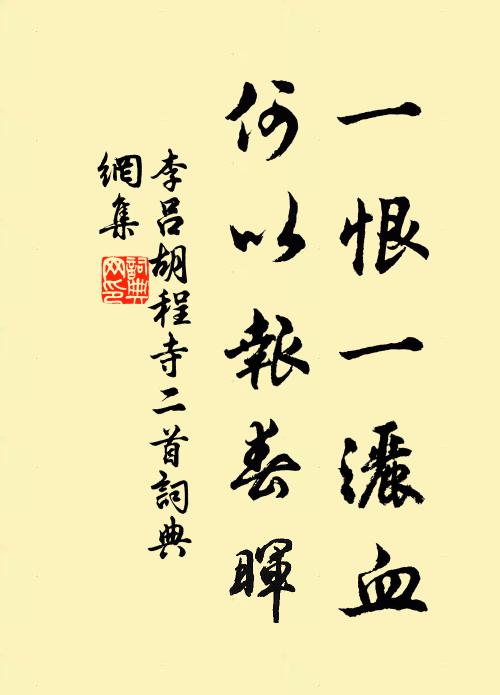 一恨一灑血
何以報春暉
李呂胡程寺二首詞典
網集
詞典網印